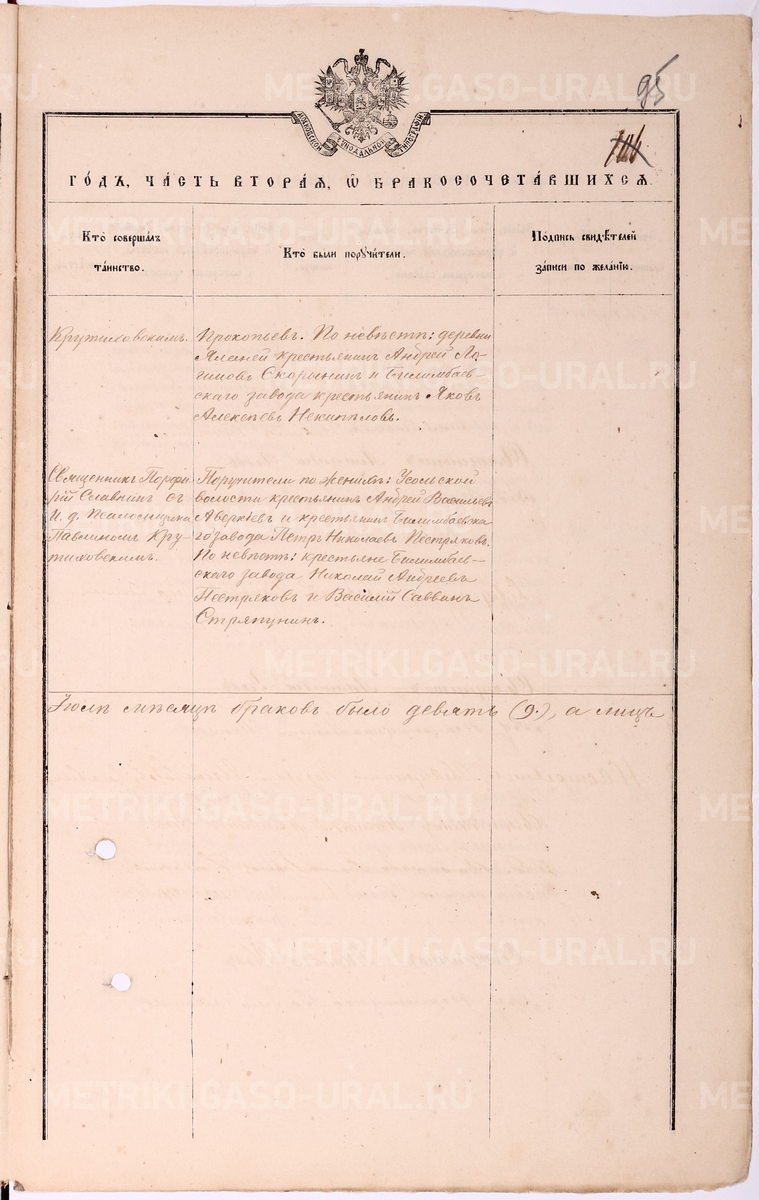 95
МОСКОВСКОЙ СѴНОДАЛЬНОЙ ТИПОГРАФІИ
ГО́ДЪ, ЧА́СТЬ ВТОРА́Я, Ѡ҆ БРАКОСОЧЕТА́ВШИХСЯ.
Кто̀ совершалъ
та́инство.
Кто̀ были поручи́тели.
Подпись свидѣ́телей
за́писи по жела́нїю.
Крутиховскимъ.
Прокопьевъ. По невѣстѣ: деревни
крестьянинъ Андрей Ло-
гиновъ Скорынинъ и Билимбаев-
скаго завода крестьянинъ Яковъ
Алексѣевъ Некипѣловъ.
Священникъ Порфи-
рій Славнинъ съ
И. д. Псаломщика
Павлиномъ Кру-
тиховскимъ.
Поручители по женихѣ: Усольской
волости крестьянинъ Андрей Васильевъ
Аверкіевъ и крестьянинъ Билимбаевска-
го завода Петръ Николаевъ Пестряковъ.
По невѣстѣ: крестьяне Билимбаев-
скаго завода Николай Андреевъ
Пестряковъ и Василій Саввинъ
Стряпунинъ.
Іюлѣ мѣсяцѣ браковъ было девять (9.), а лицъ
METRIKI.GASO-URAL.RU